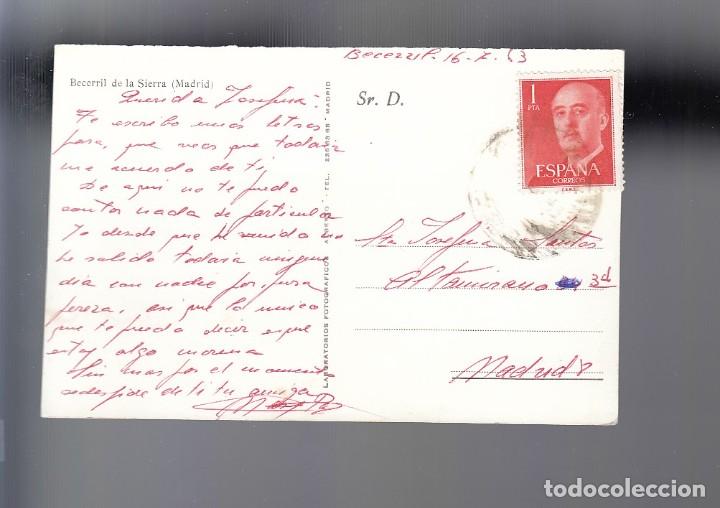 Becerril. 16-7-63
Becerril de la Sierra (Madrid)
Querida Josefina:
Te escribo unas letras
para que veas que todavia
me acuerdo de ti,
De aqui no te puedo
contar nada de particular
Yo desde que he venido no
he salido todavia ningun
dia con nadie por pura
pereza, asi que lo unico
que te puedo decir es que
estoy algo morena
Sin mas por el momento
se despide de ti tu amiga
LABORATORIOS FOTOGRAFICOS TEL. MADRID
Sr. D.
1
PTA
ESPAÑA
CORREOS
Srta Josefina Santos
Altamirano 3d
Madrid 8
todocoleccion.net